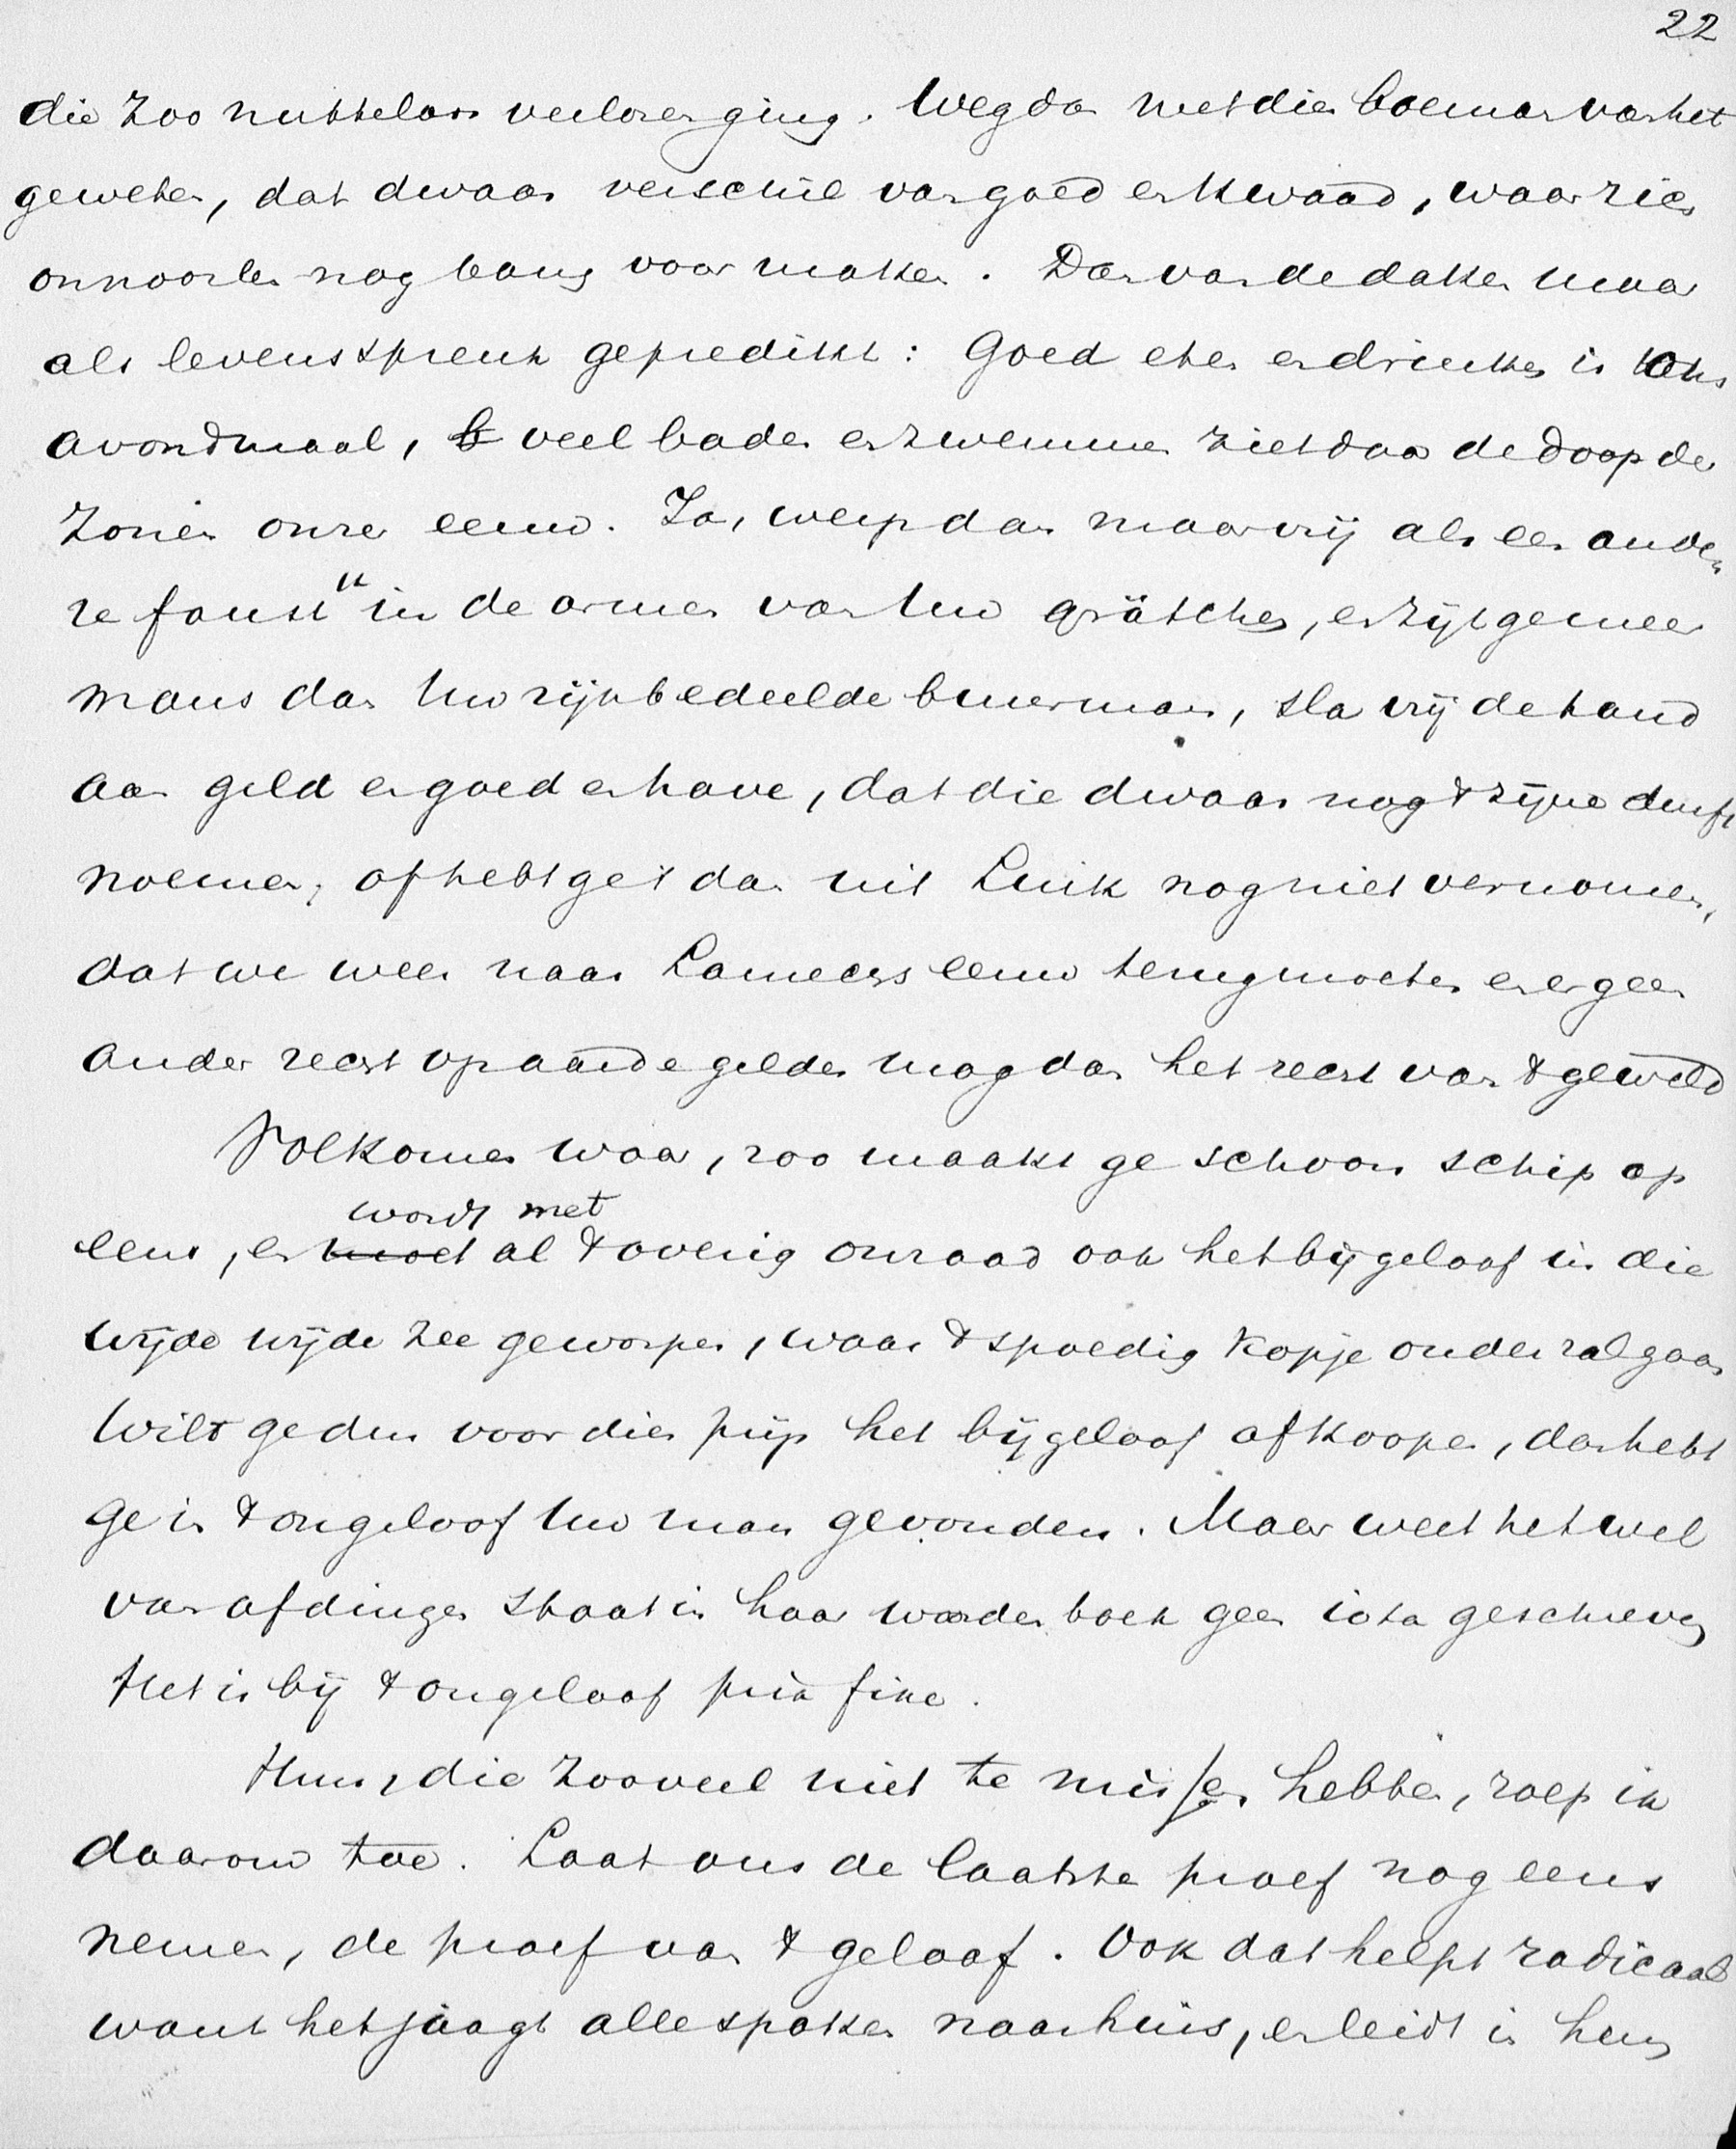 22
die zoo nutteloos verloren ging. Weg dan met dien boeman van het
geweten, dat dwaas verschil van goed en kwaad, waar zich
onnoozlen nog bang voor maken. Dan van de daken maar
als levensspreuk gepredikt: Goed eten en drinken is ons
avondmaal, veel baden en zwemmen ziet daar de doop der
zonen onzer eeuw. Ja, werp dan maar vrij als een ande
re faust u in de armen van Uw grätchen, en zijt ge meer
mans dan Uw rijkbedeelde buurman, sla vrij de hand
aan geld en goed en have, dat die dwaas nog 't zijne durft
noemen, of hebt get dan uit Luik nog niet vernomen,
dat we weer naar Lamechs eeuw terug moeten en er geen
ander recht op aarde gelden mag dan het recht van 't geweld
Volkomen waar, zoo maakt ge schoon schip op
wordt met
eens, en moet al 't overig onraad ook het bijgeloof in die
wijde wijde zee geworpen, waar 't spoedig kopje onder zal gaan
Wilt ge dus voor dien prijs het bijgeloof afkoopen, dan hebt
ge in 't ongeloof Uw man gevonden. Maar weet het wel
van afdingen staat in haar woordenboek geen iota geschreven
Het is bij 't ongeloof prix fixe.
Hun, die zooveel niet te missen hebben, roep ik
daarom toe. Laat ons de laatste proef nog eens
nemen, de proef van 't geloof. Ook dat helpt radicaal
want het jaagt alle spoken naar huis, en leidt in hun